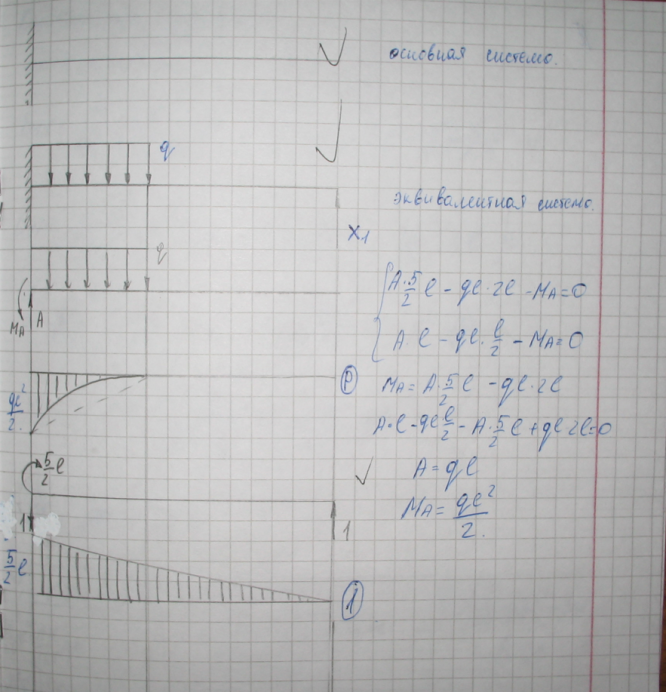 основная система.
q
эквивалентная система.
X₁
q
A·5/2 l - ql·2l - MA = 0
A·l - ql·l/2 - MA = 0
MA A
ql²/2
P
MA = A·5/2 l - ql·2l
A·l - ql l/2 - A·5/2 l + ql 2l = 0
5/2 l
A = ql
MA = ql²/2
1 1
5/2 l
1